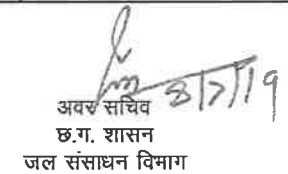 8/7/19
अवर सचिव
छ.ग. शासन
जल संसाधन विभाग